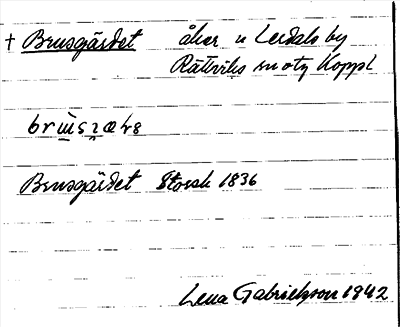 † Brusgärdet åker u Lerdals by
Rättviks sn otz Koppl
Brusgärdet Storsk 1836
Lena Gabrielsson 1942